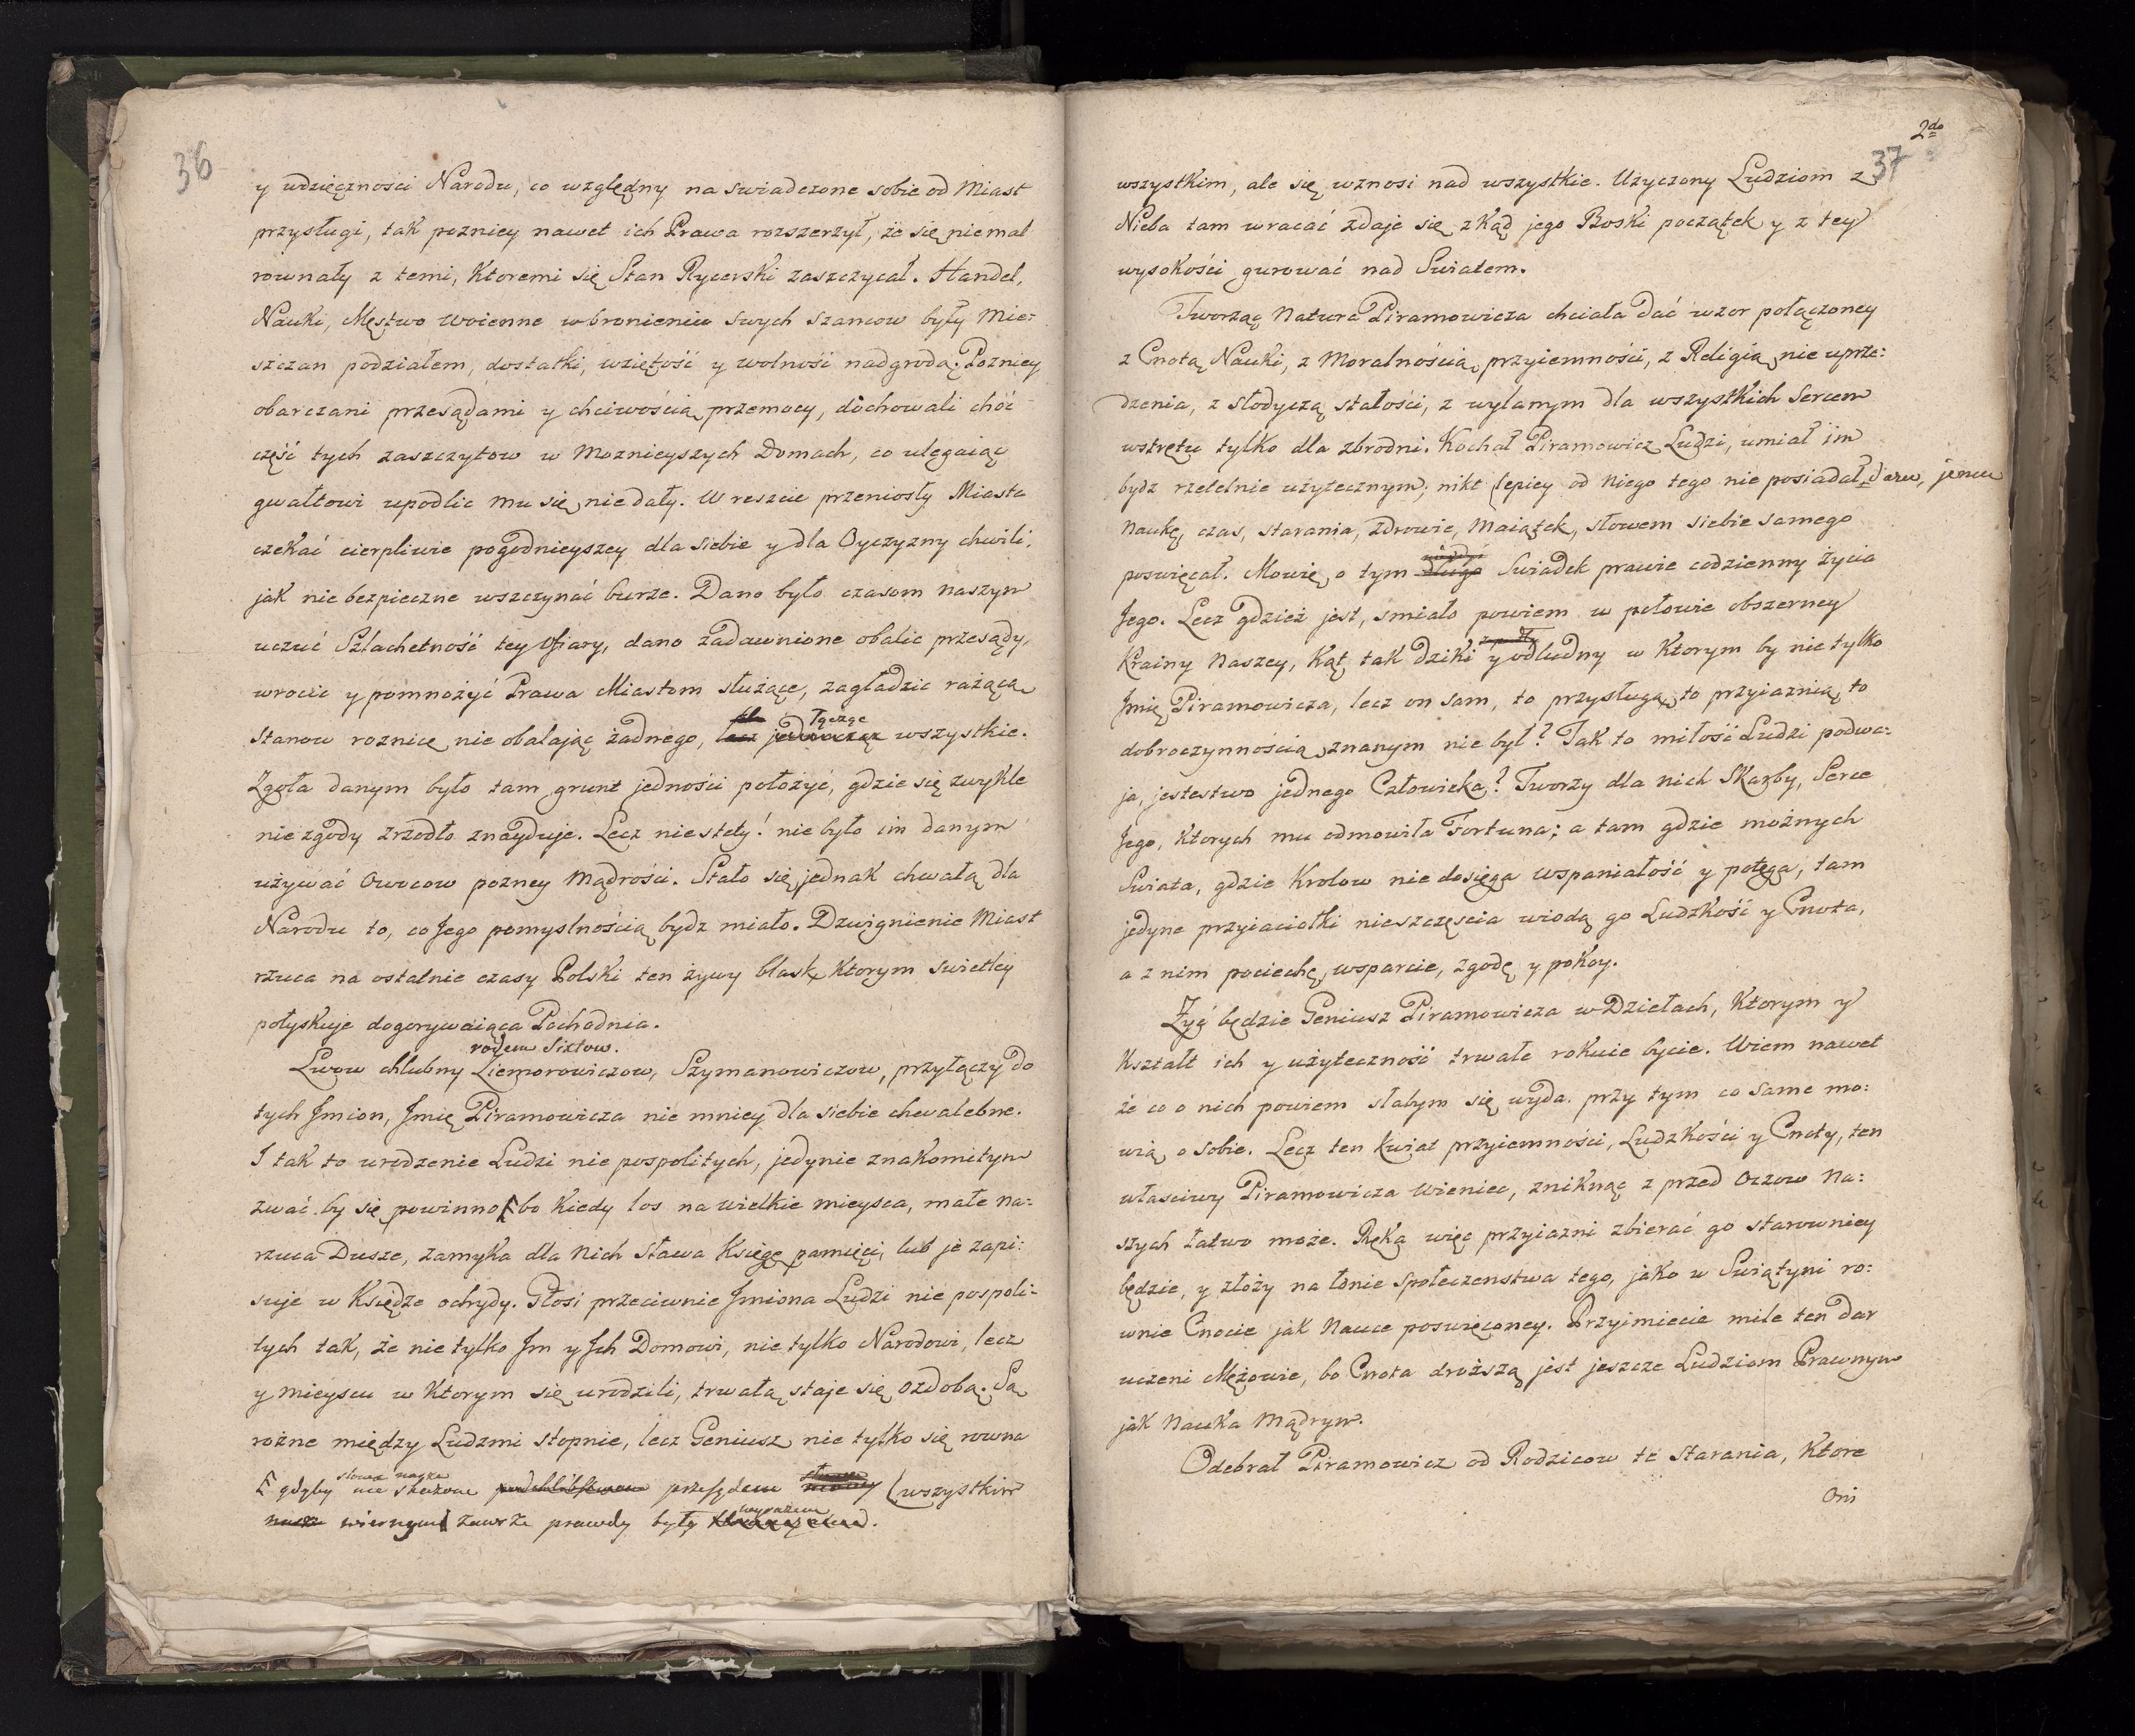 36
y wdzięcznosci Narodu, co względny na swiadczone sobie od Miast
przysługi, tak pozniey nawet ich Prawa rozszerzył, że się niemal
rownały z temi, Ktoremi się Stan Rycerski zaszczycał. Handel,
Nauki, Męstwo woienne w bronieniu swych szancow były Mie:
szczan podziałem, dostatki, wziętość y wolność nadgrodą. Pozniey
obarczani przesądami y chciwością przemocy, dochowali choć
część tych zaszczytow w Moznieyszych Domach, co ulegaiąc
gwałtowi upodlic mu się nie dały. W reszcie przeniosły Miasta
czekać cierpliwie pogodnieyszey dla siebie y dla Oyczyzny chwili,
jak niebezpieczne wszczynać burze. Dano było czasom naszym
uczuć Szlachetność tey Ofiary, dano zadawnione obalic przesądy,
wrocic y pomnożyć Prawa Miastom służące, zagładzic rażącą
łącząc
Stanow roznicę nie obalając żadnego, lecz jednocząc wszystkie.
Zgoła danym było tam grunt jedności położyć, gdzie się zwykle
niezgody zrzodło znayduje. Lecz niestety! nie było im danym
używać Owocow pozney Mądrości. Stało się jednak chwałą dla
Narodu to, co Jego pomyslnością bydz miało. Dzwignienie Miast
rzuca na ostatnie czasy Polski ten żywy blask, Ktorym swietley
połyskuje dogorywaiąca Pochodnia.
rodem Sixtow.
Lwow chlubny Ziemorowiczow, Szymanowiczow, przyłączy do
tych Jmion, Jmię Piramowicza nie mniey dla siebie chwalebne.
I tak to urodzenie Ludzi nie pospolitych, jedynie znakomitym
zwać by się powinno, bo Kiedy los na wielkie mieysca, małe na:
rzuca Dusze, zamyka dla Nich Sława Księgę pamięci, lub je zapi:
suje w Księdze ochydy. Głosi przeciwnie Jmiona Ludzi nie pospoli:
tych tak, że nie tylko Jm y Jch Domowi, nie tylko Narodowi, lecz
y mieyscu w Ktorym się urodzili, trwałą staje się ozdobą. Są
rożne między Ludzmi stopnie, lecz Geniusz nie tylko się rowna
gdyby nie skażone przesądem (wszystkim
wiernym zawsze prawdy były wyrazem.
2do
37
wszystkim, ale się wznosi nad wszystkie. Uzyczony Ludziom z
Nieba tam wracać zdaje się zkąd jego Boski początek y z tey
wysokości gurować nad Swiatem.
Tworząc Natura Piramowicza chciała dać wzor połączoney
z Cnotą Nauki, z Moralnością przyiemności, z Religią nie uprze:
dzenia, z słodyczą stałości, z wylanym dla wszystkich Sercem
wstrętu tylko dla zbrodni. Kochał Piramowicz Ludzi, umiał im
bydz rzetelnie użytecznym, nikt lepiey od Niego tego nie posiadał daru, jemu
Naukę, czas, starania, zdrowie, Maiątek, słowem siebie samego
poswięcał. Mowię o tym długo Swiadek prawie codzienny życia
Jego. Lecz gdzież jest, smiało powiem w połowie obszerney
Krainy Naszey, Kąt tak dziki y odludny w Ktorym by nie tylko
Jmię Piramowicza, lecz on sam, to przysługą, to przyiaznią, to
dobroczynnością znanym nie był? Tak to miłość Ludzi podwa:
ja, jestestwo jednego Człowieka? Tworzy dla nich Skarby, Serce
Jego, Ktorych mu odmowiła Fortuna; a tam gdzie możnych
Swiata, gdzie Krolow nie dosięga wspaniałość y potęga, tam
jedyne przyiaciołki nieszczęscia wiodą go Ludzkość y Cnota,
a z nim pociechę, wsparcie, zgodę y pokoy.
Żyć będzie Geniusz Piramowicza w Dziełach, Ktorym y
Kształt ich y użyteczność trwałe rokuie bycie. Wiem nawet
że co o nich powiem słabym się wyda przy tym co same mo:
wią o sobie. Lecz ten kwiat przyiemności, Ludzkości y Cnoty, ten
własciwy Piramowicza Wieniec, zniknąć z przed Oczow Na:
szych łatwo może. Ręka więc przyiazni zbierać go starowniey
będzie, y złoży na łonie Społeczenstwa tego, jako w Swiątyni ro:
wnie Cnocie jak Nauce poswięconey. Przyjmiecie mile ten dar
uczeni Mężowie, bo Cnota droższą jest jeszcze Ludziom Prawnym
jak Nauka Mądrym.
Odebrał Piramowicz od Rodzicow te Starania, Ktore
Oni